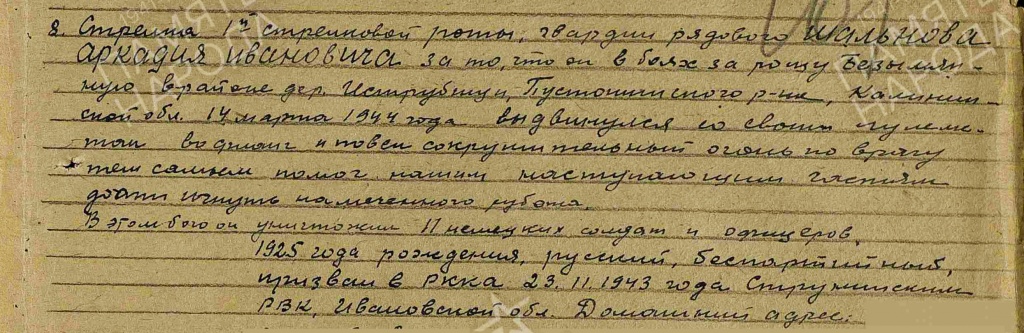 8. Стрелка 1й стрелковой роты, гвардии рядового ШАЛЬНОВА
АРКАДИЯ ИВАНОВИЧА за то, что он в боях за рощу Безымян-
ную в районе дер. Пустошкинского р-на, Калинин-
ской обл. 14 марта 1944 года выдвинулся со своим пулеме-
том во фланг и повел сокрушительный огонь по врагу
тем самым помог нашим наступающим частям
достигнуть намеченного рубежа.
В этом бою он уничтожил 11 немецких солдат и офицеров.
1925 года рождения, русский, беспартийный,
призван в РККА 23.11.1943 года Струнинским
РВК, Ивановской обл. Домашний адрес: